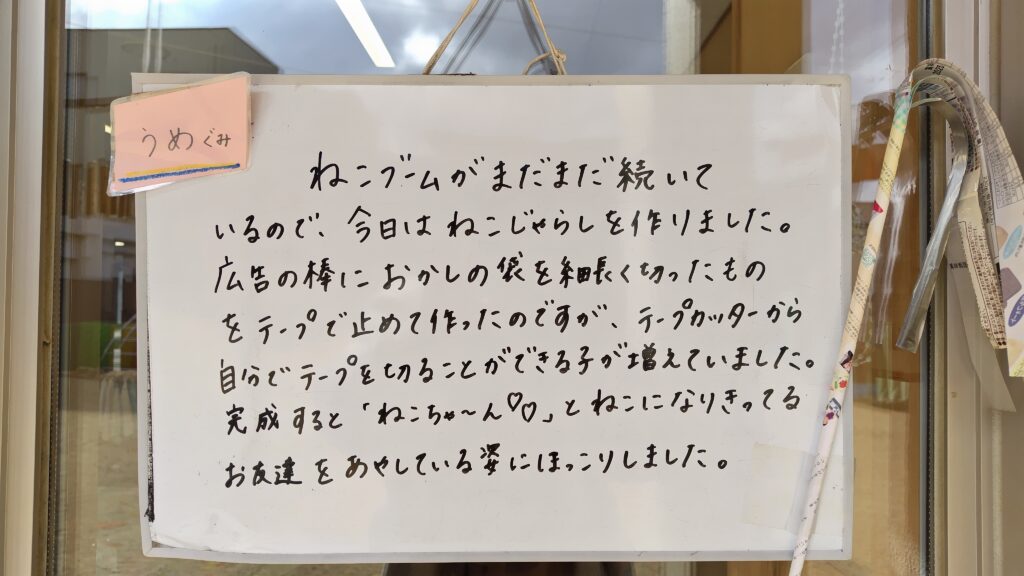 うめぐみ
ねこブームがまだまだ続いて
いるので、今日はねこじゃらしを作りました。
広告の棒におかしの袋を細長く切ったもの
をテープで止めて作ったのですが、テープカッターから
自分でテープを切ることができる子が増えていました。
完成すると「ねこちゃ〜ん♡♡」とねこになりきってる
お友達をあやしている姿にほっこりしました。